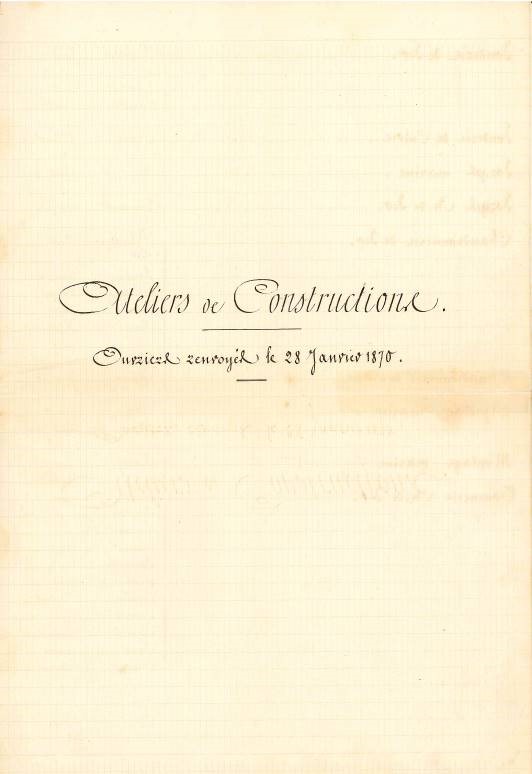 Ateliers de Constructions.
Ouvriers renvoyés le 28 Janvier 1870.